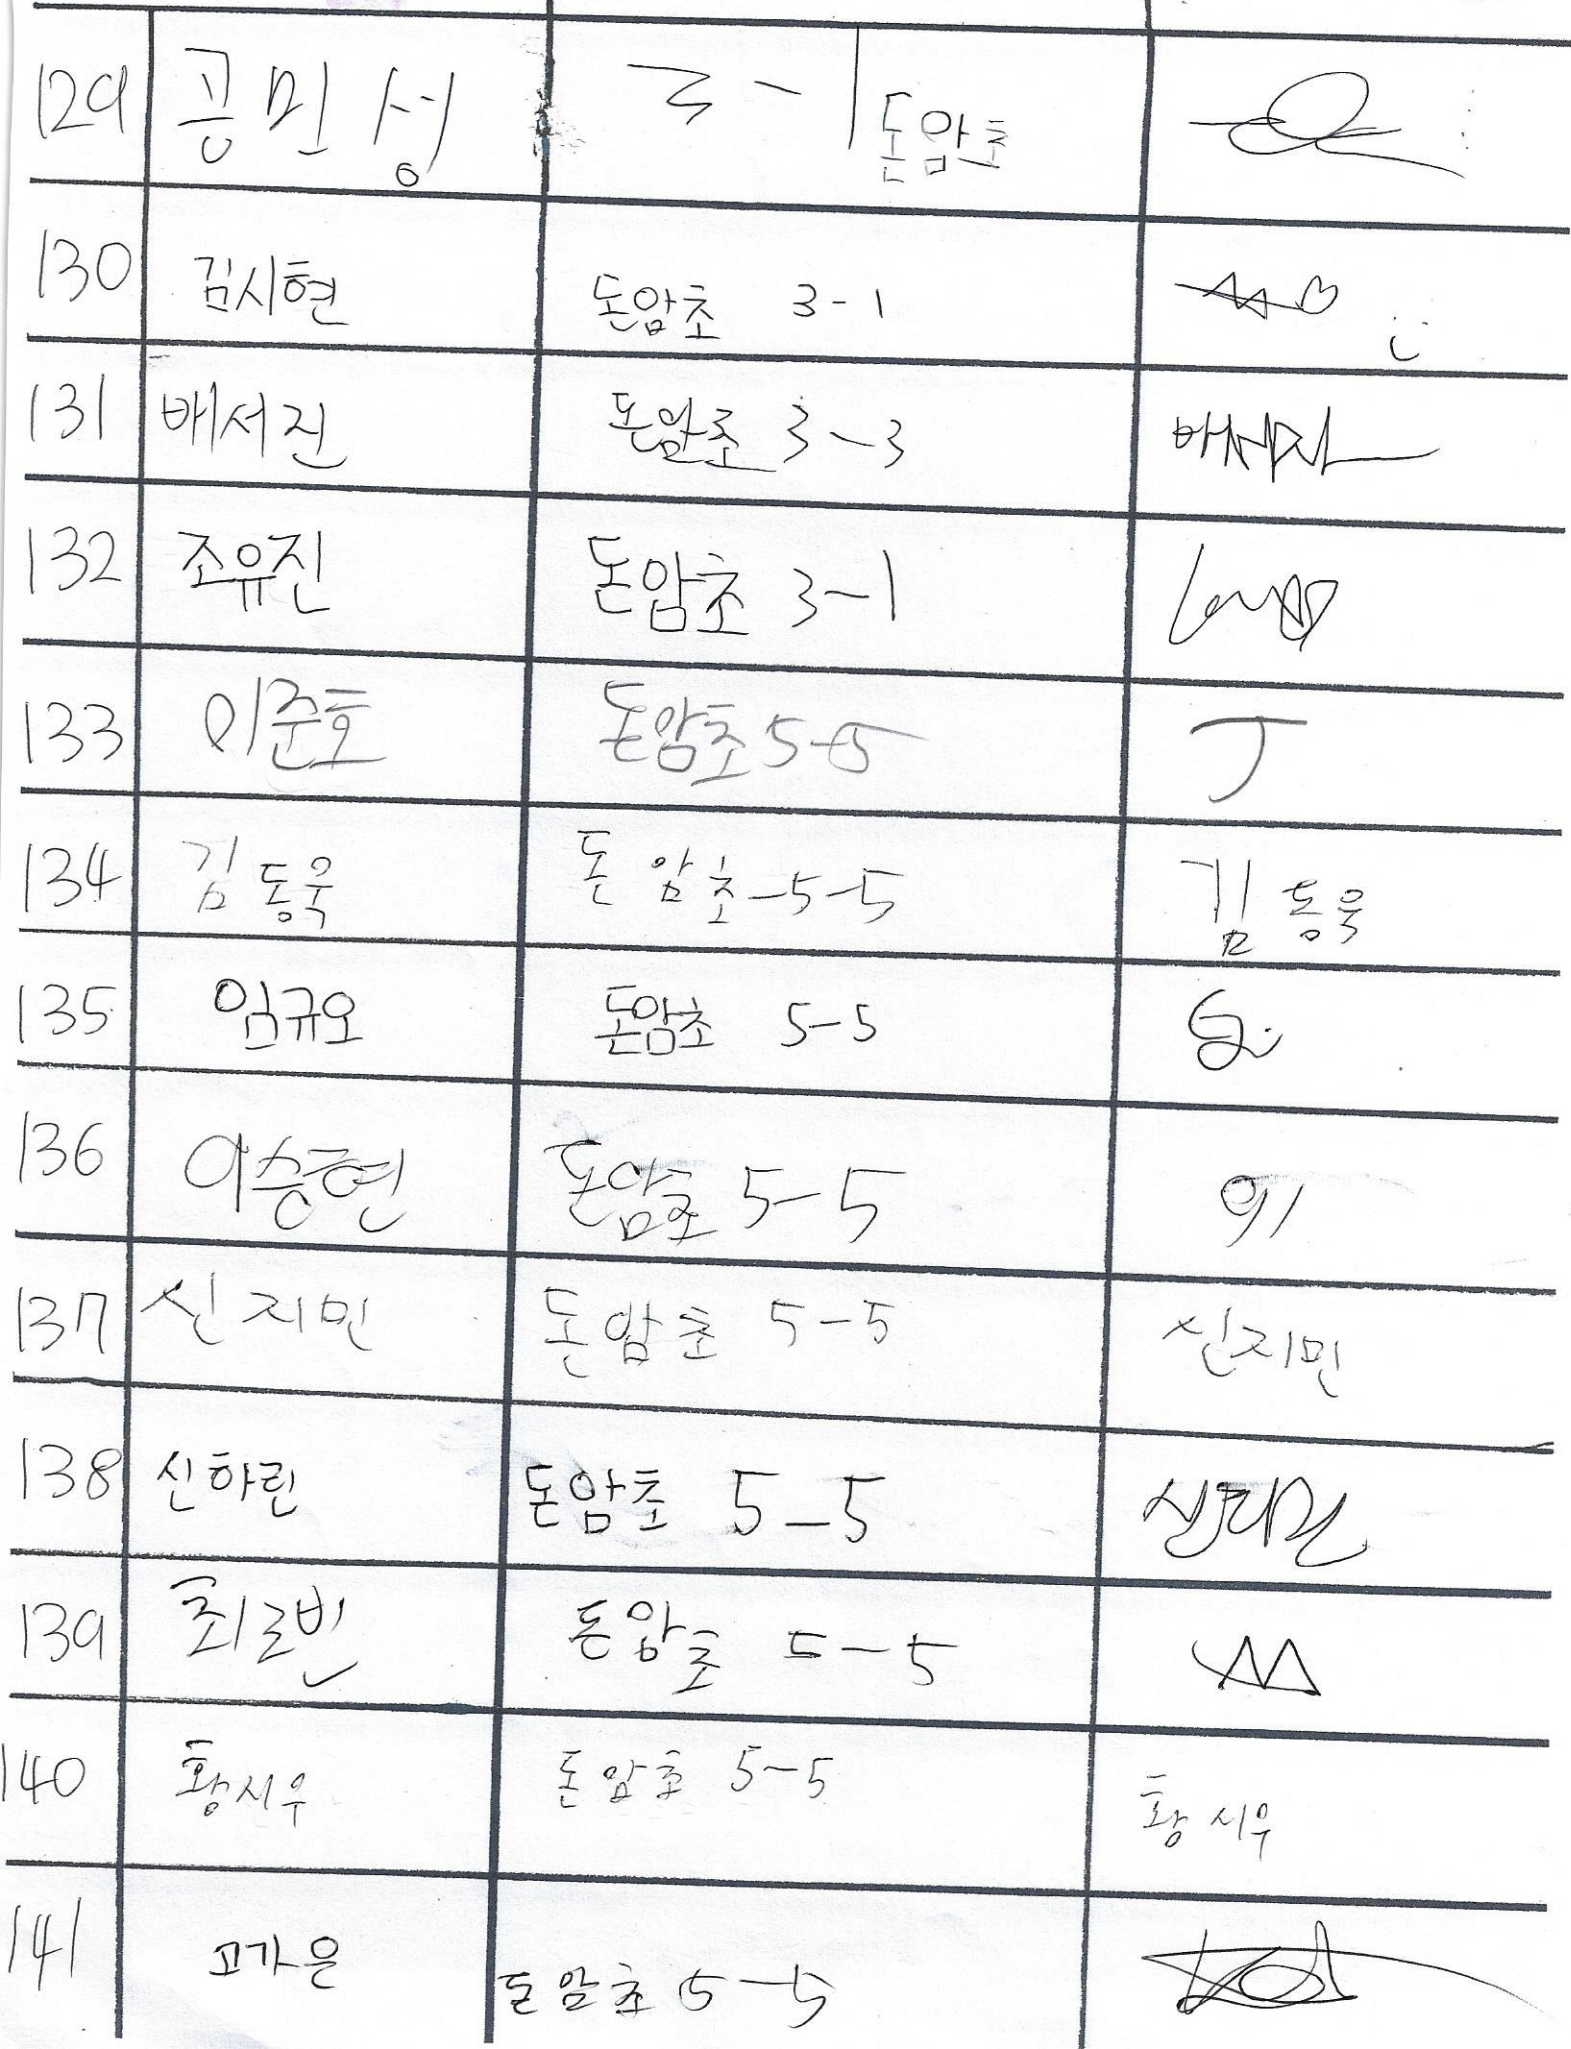 129 공민성 3-1 돈암초
130 김시현 돈암초 3-1
131 배서진 돈암초 3-3 배서진
132 조유진 돈암초 3-1
133 이준호 돈암초 5-5 J
134 김동욱 돈암초-5-5 김동욱
135 임규오 돈암초 5-5
136 이승현 돈암초 5-5 이
137 신지민 돈암초 5-5 신지민
138 신하린 돈암초 5-5
139 최로빈 돈암초 5-5
140 황시우 돈암초 5-5 황시우
141 고가은 돈암초 5-5